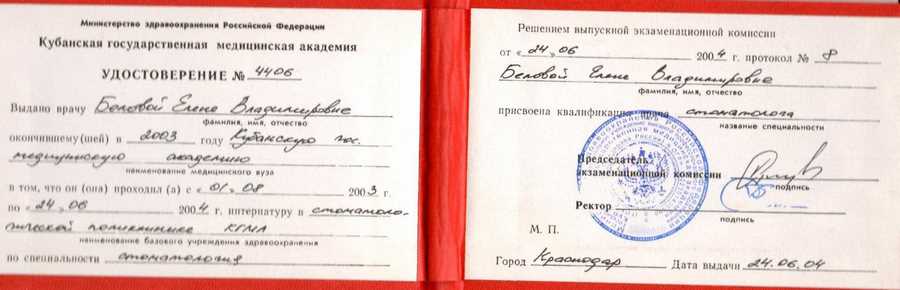 Министерство здравоохранения Российской Федерации
Кубанская государственная медицинская академия
УДОСТОВЕРЕНИЕ № 4406
Выдано врачу Беловой Елене Владимировне
фамилия, имя, отчество
окончившему(шей) в 2003 году Кубанскую гос.
медицинскую академию
наименование медицинского вуза
в том, что он (она) проходил (а) с «01» 08 2003 г.
по «24» 06 2004 г. интернатуру в стоматоло-
гической поликлинике КГМА
наименование базового учреждения здравоохранения
по специальности стоматология
Решением выпускной экзаменационной комиссии
от «24» 06 2004 г. протокол № 8
Беловой Елене Владимировне
фамилия, имя, отчество
присвоена квалификация врача стоматолога
название специальности
Председатель
экзаменационной комиссии
подпись
Ректор
подпись
М. П.
Город Краснодар Дата выдачи 24.06.04